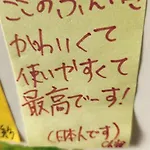 ここのふんいき
かわいくて
使いやすくて
最高でーす!
(日本人です)